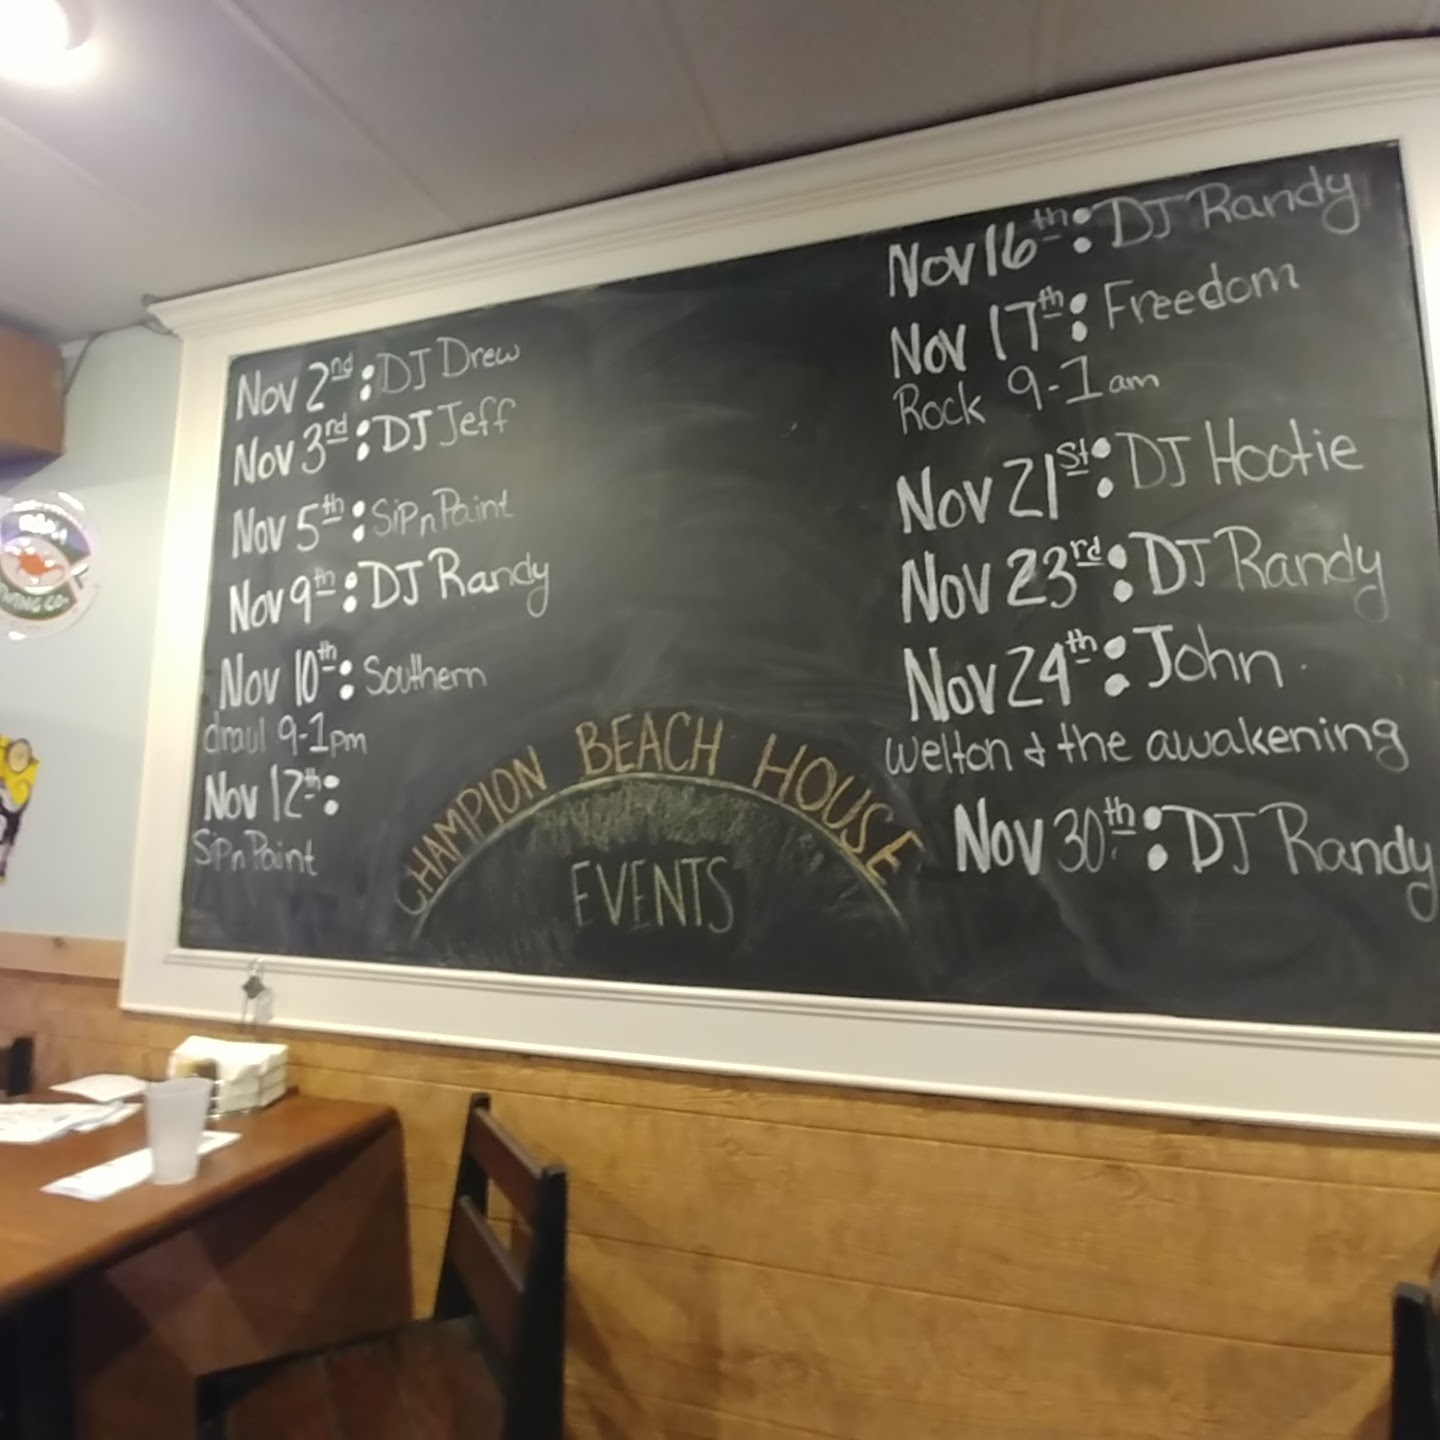 Nov 2nd: DJ Drew
Nov 3rd: DJ Jeff
Nov 5th: SipnPaint
Nov 9th: DJ Randy
Nov 10th: Southern
draul 9-1pm
Nov 12th:
SipnPaint
CHAMPION BEACH HOUSE
EVENTS
Nov 16th: DJ Randy
Nov 17th: Freedom
Rock 9-1am
Nov 21st: DJ Hootie
Nov 23rd: DJ Randy
Nov 24th: John
Welton & the awakening
Nov 30th: DJ Randy